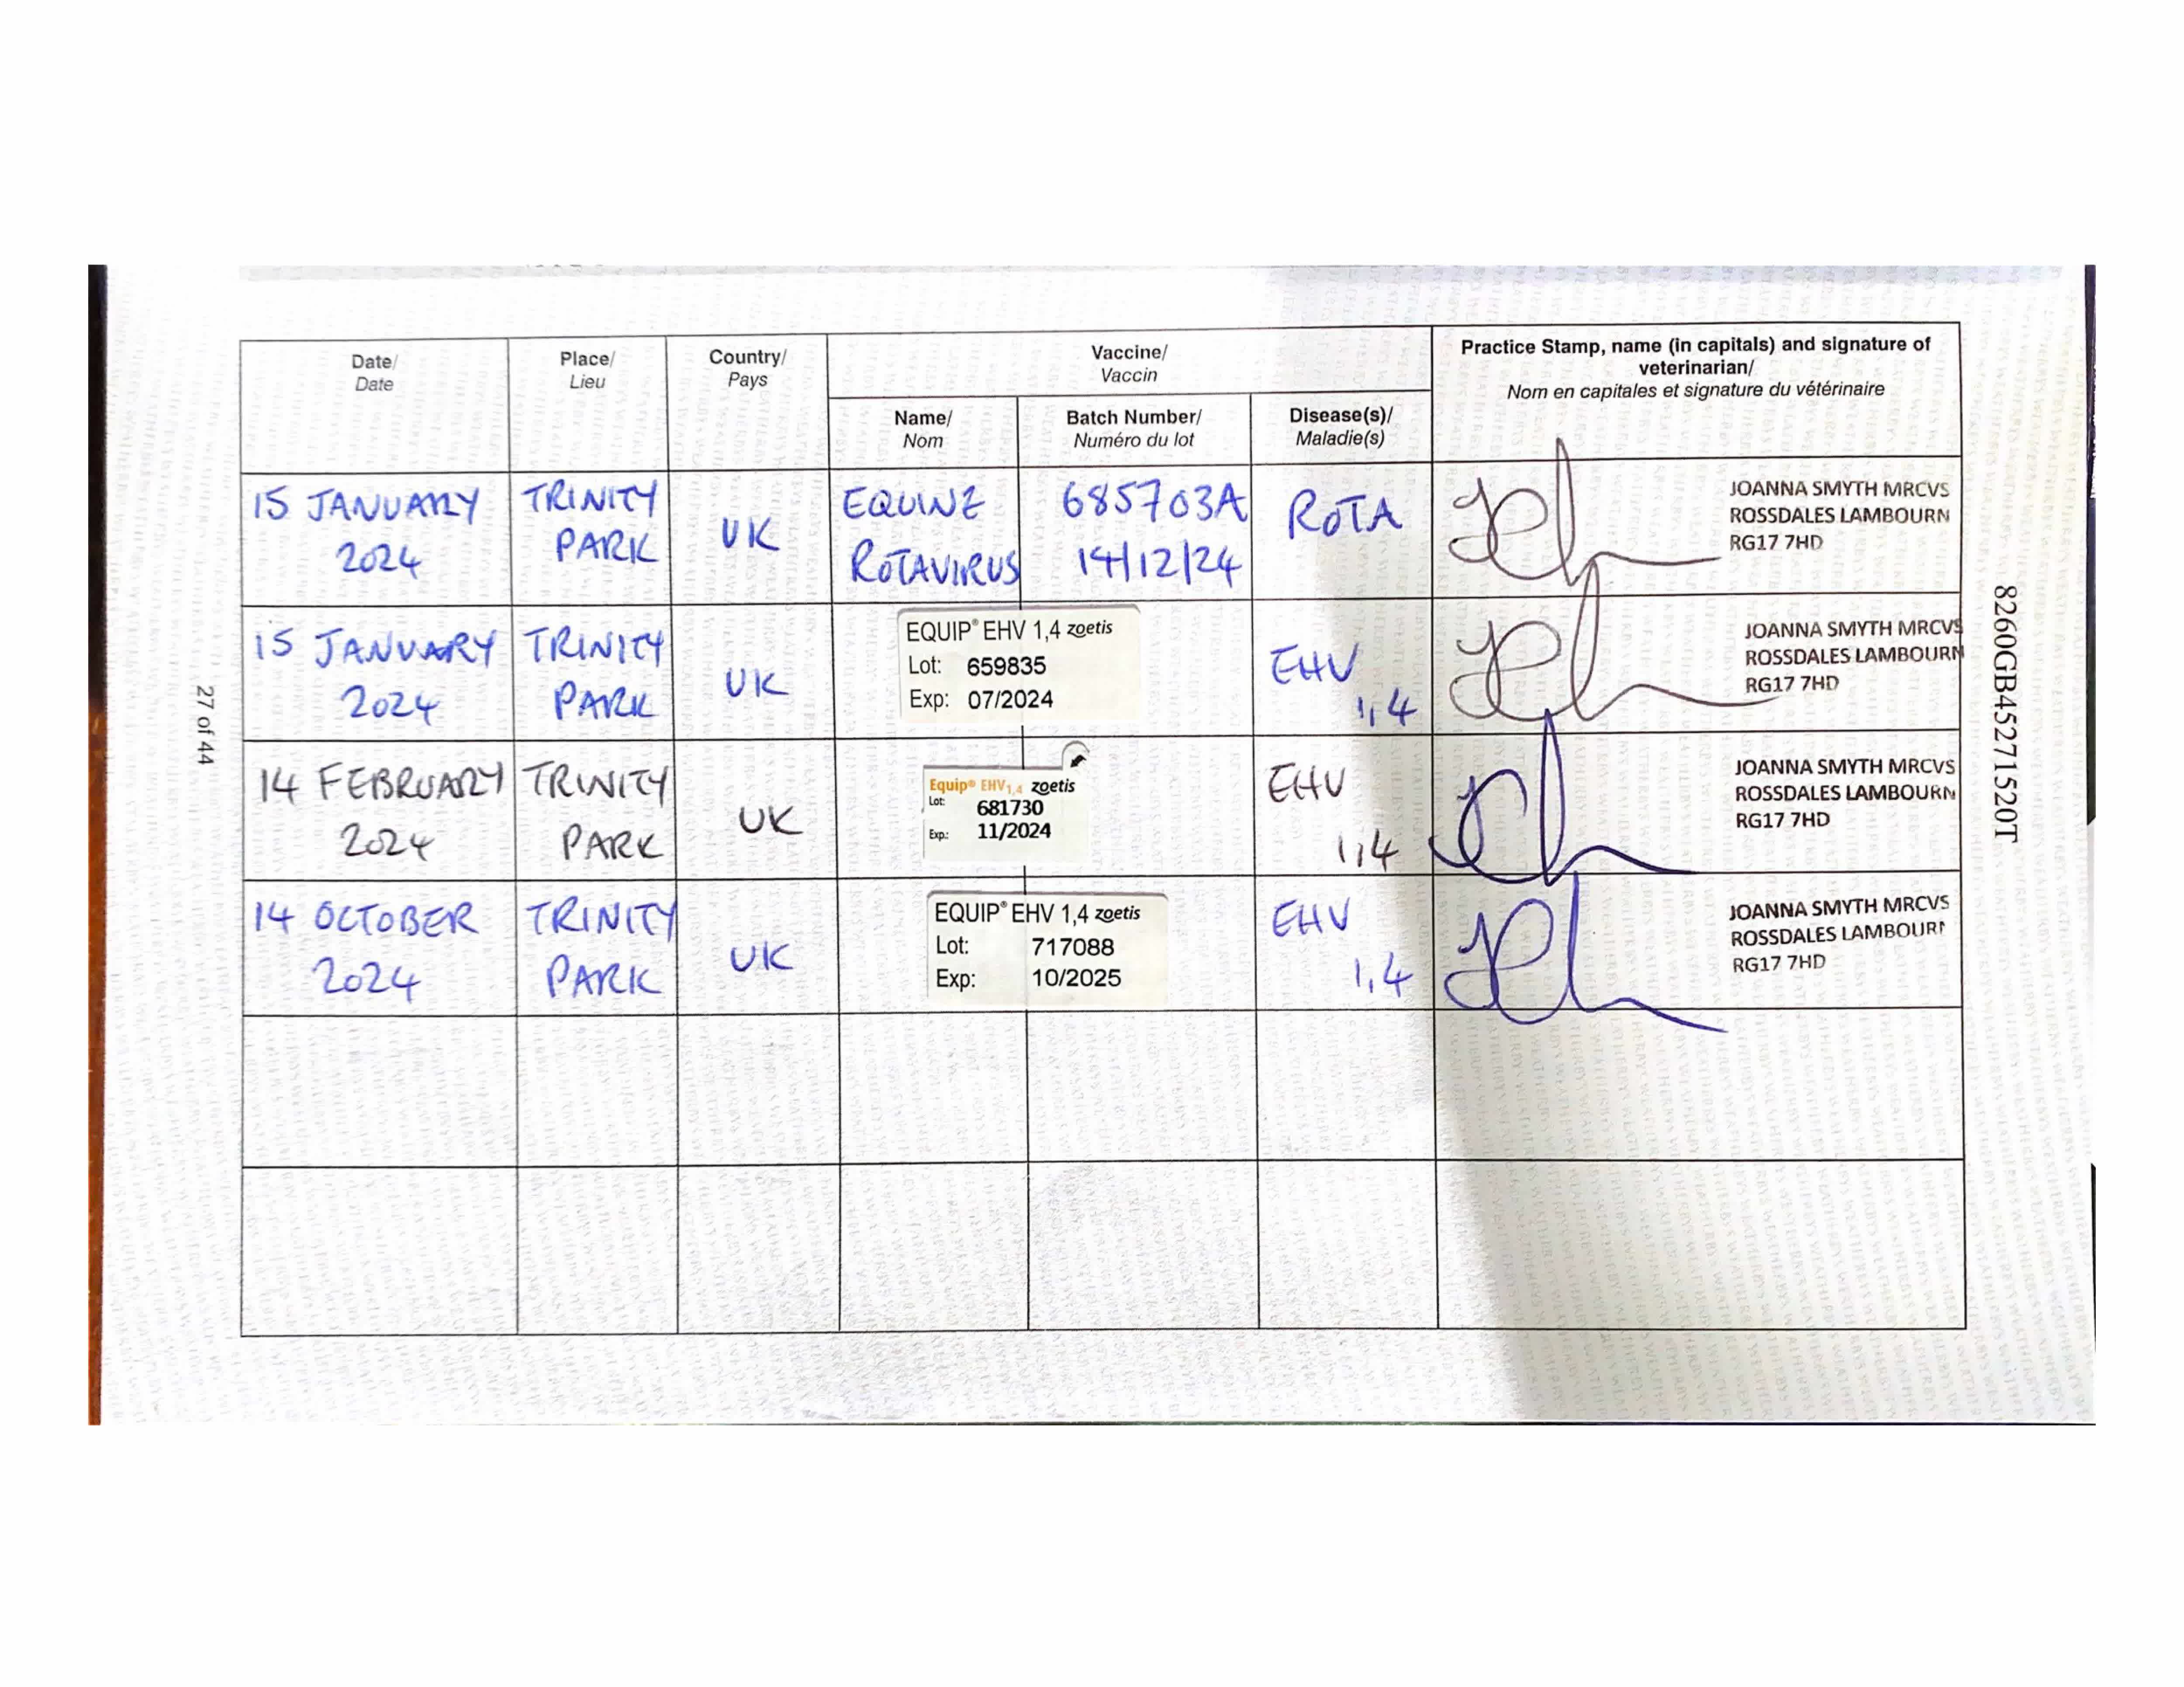 Date/
Date
Place/
Lieu
Country/
Pays
Vaccine/
Vaccin
Name/
Nom
Batch Number/
Numéro du lot
Disease(s)/
Maladie(s)
Practice Stamp, name (in capitals) and signature of
veterinarian/
Nom en capitales et signature du vétérinaire
15 JANUARY
2024
TRINITY
PARK
UK
EQUINE
ROTAVIRUS
685703A
14/12/24
ROTA
JOANNA SMYTH MRCVS
ROSSDALES LAMBOURN
RG17 7HD
15 JANUARY
2024
TRINITY
PARK
UK
EQUIP® EHV 1,4 zoetis
Lot: 659835
Exp: 07/2024
EHV
1,4
JOANNA SMYTH MRCVS
ROSSDALES LAMBOURN
RG17 7HD
14 FEBRUARY
2024
TRINITY
PARK
UK
Equip® EHV1,4 zoetis
Lot: 681730
Exp.: 11/2024
EHV
1,4
JOANNA SMYTH MRCVS
ROSSDALES LAMBOURN
RG17 7HD
14 OCTOBER
2024
TRINITY
PARK
UK
EQUIP® EHV 1,4 zoetis
Lot: 717088
Exp: 10/2025
EHV
1,4
JOANNA SMYTH MRCVS
ROSSDALES LAMBOURN
RG17 7HD
27 of 44
8260GB45271520T